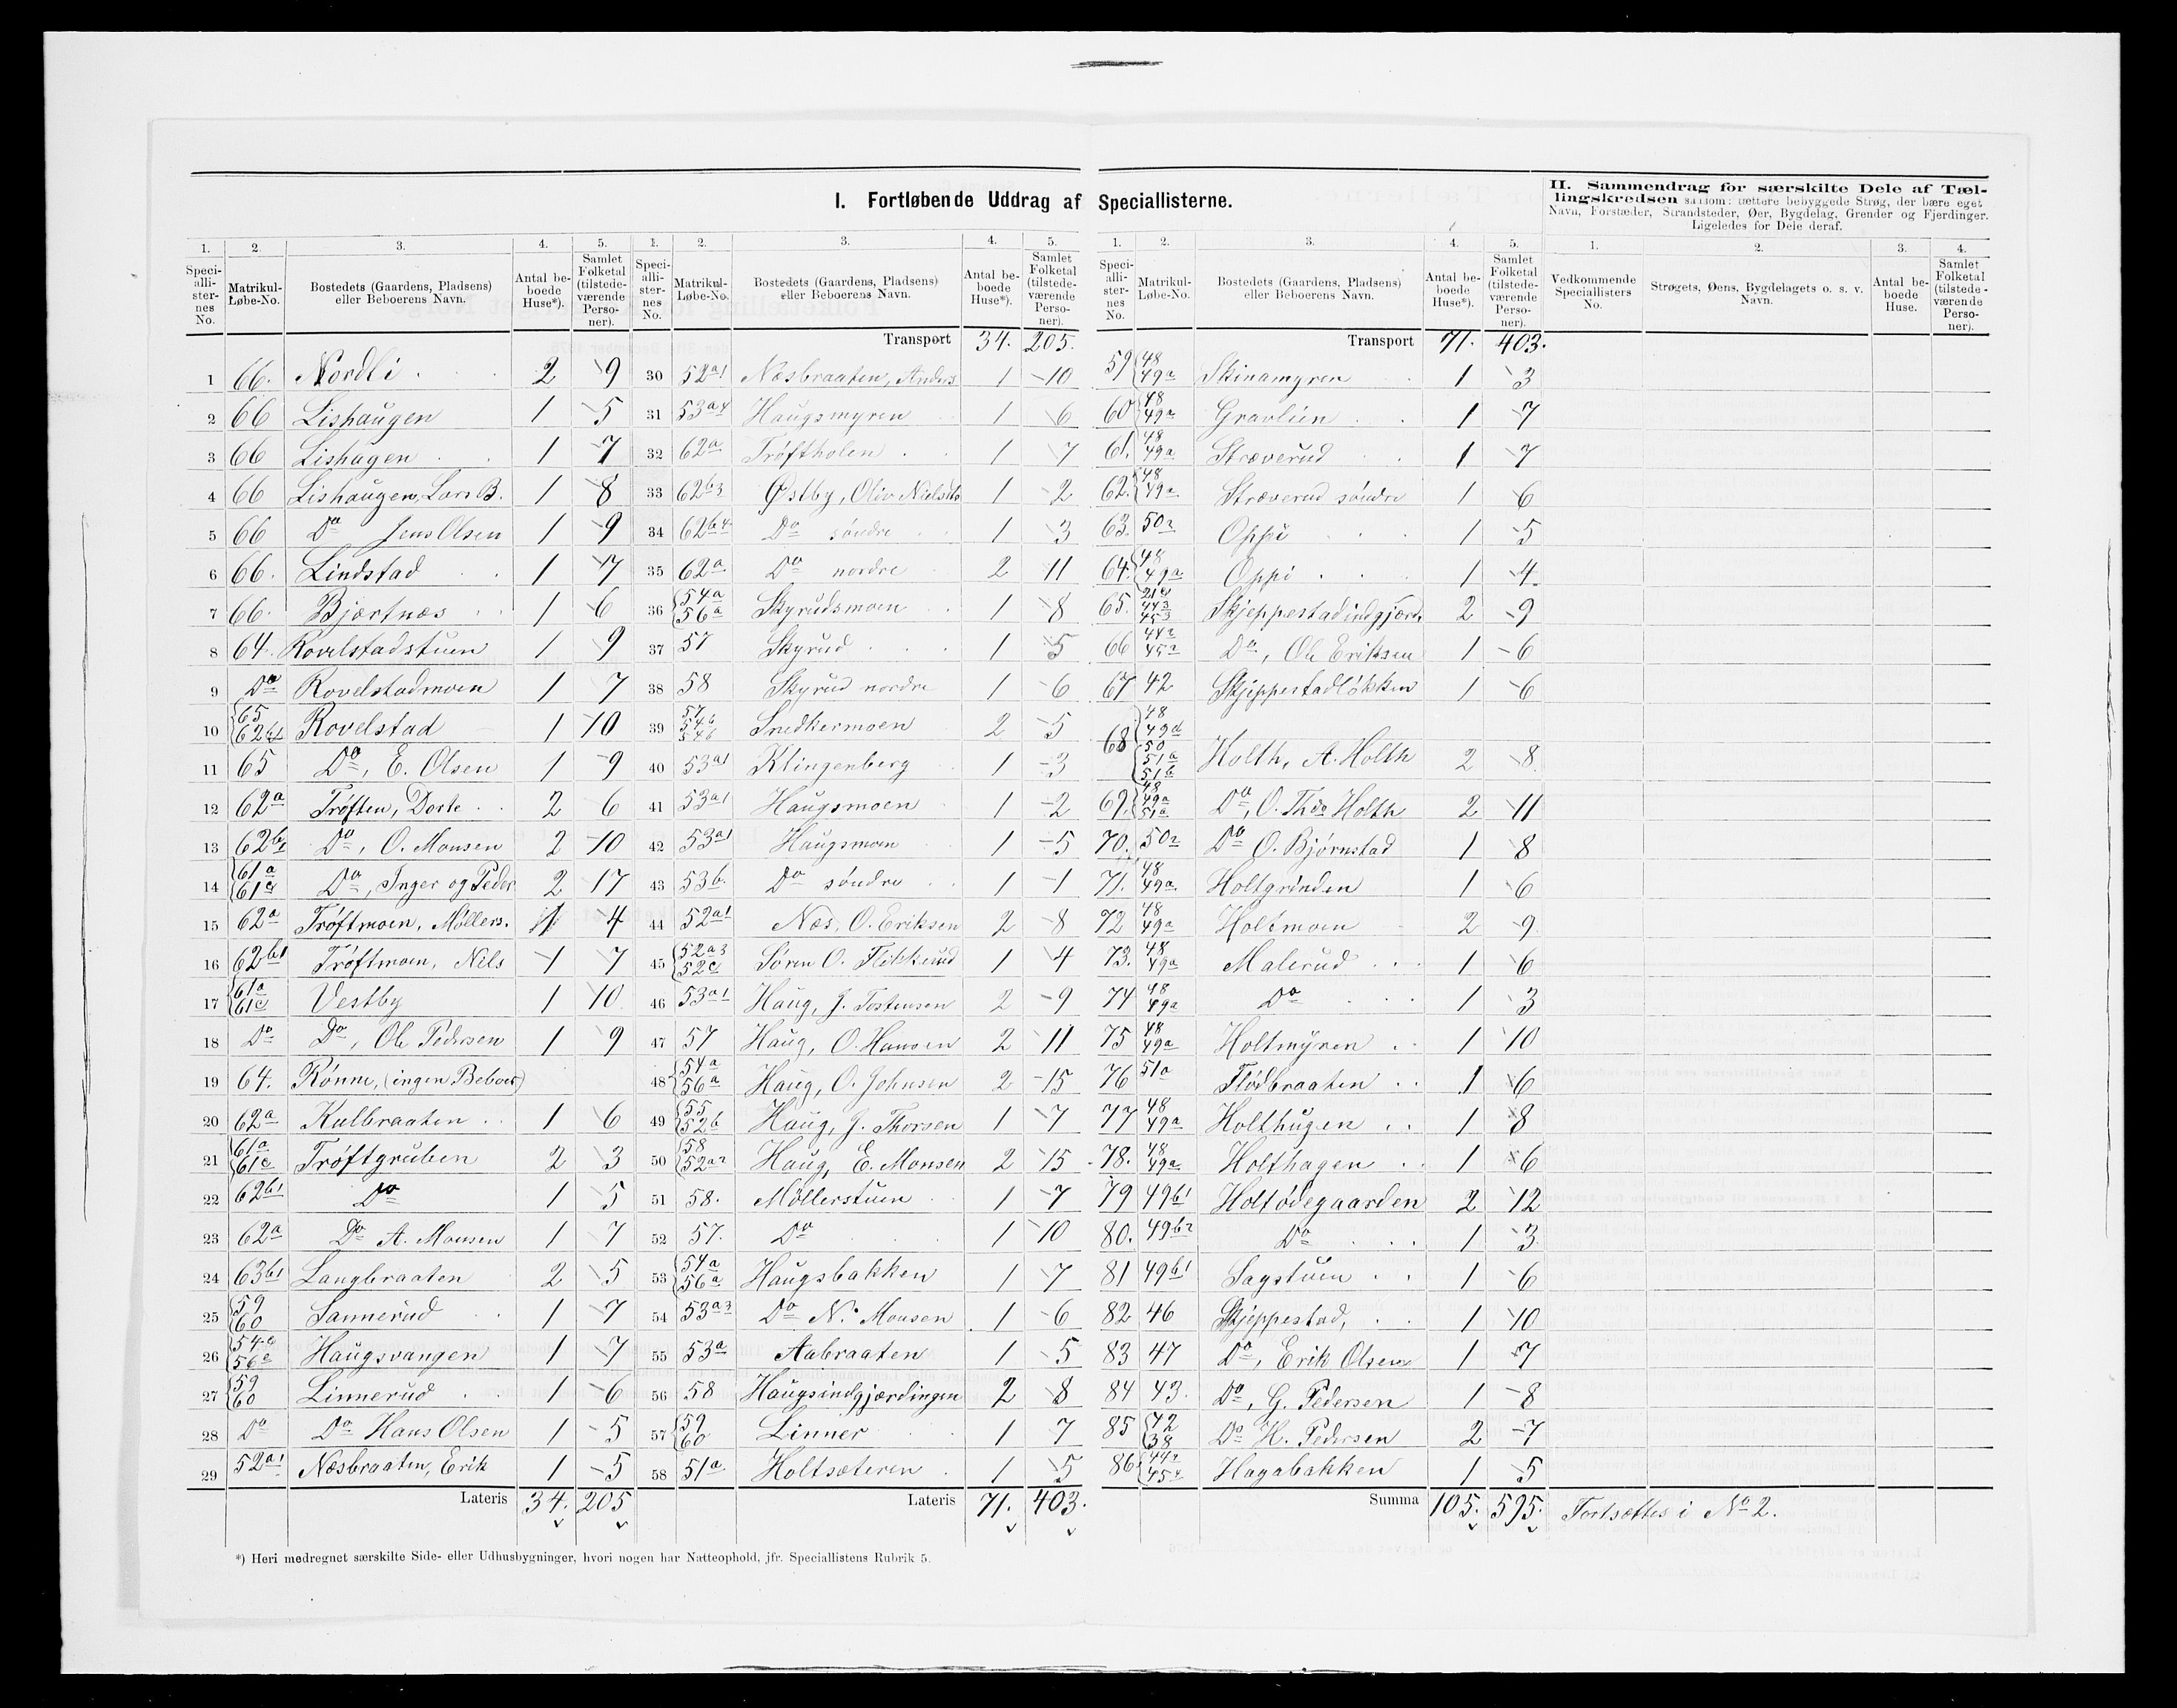 I. Fortløbende Uddrag af Speciallisterne.
II. Sammendrag for særskilte Dele af Tællingskredsen saasom: tættere bebyggede Strøg, der bære eget Navn, Forstæder, Strandsteder, Øer, Bygdelag, Grender og Fjerdinger. Ligeledes for Dele deraf.
1. 2. 3. 4. 5. 1. 2. 3. 4. 5. 1. 2. 3. 4. 5. 1. 2. 3. 4.
Speciallisternes No. Matrikul-Løbe-No. Bostedets (Gaardens, Pladsens) eller Beboerens Navn. Antal beboede Huse*). Samlet Folketal (tilstedeværende Personer).
Speciallisternes No. Matrikul-Løbe-No. Bostedets (Gaardens, Pladsens) eller Beboerens Navn. Antal beboede Huse*). Samlet Folketal (tilstedeværende Personer).
Speciallisternes No. Matrikul-Løbe-No. Bostedets (Gaardens, Pladsens) eller Beboerens Navn. Antal beboede Huse*). Samlet Folketal (tilstedeværende Personer).
Vedkommende Speciallisters No. Strøgets, Øens, Bygdelagets o. s. v. Navn. Antal beboede Huse. Samlet Folketal (tilstedeværende Personer).
1 66. Nordli 2 9
2 66 Lishaugen 1 5
3 66 Lishagen 1 7
4 66 Lishaugen, Lars B. 1 8
5 66 Do Jens Olsen 1 9
6 66. Lindstad 1 7
7 66. Bjærtnæs 1 6
8 64. Rovelstadstuen 1 9
9 Do Rovelstadmoen 1 7
10 65 62b1 Rovelstad 1 10
11 65 Do, E. Olsen 1 9
12 62a Trøften, Dorte 2 6
13 62b1 Do, O. Monsen 2 10
14 61a 61c Do, Inger og Peder 2 17
15 62a Trøftmoen, Møllers. 1 4
16 62b1 Trøftmoen, Nils 1 7
17 61a 61c Vestby 1 10
18 Do Do, Ole Pedersen 1 9
19 64. Rønne, (ingen Beboer)
20 62a Kulbraaten 1 6
21 61a 61c Trøftgruben 2 3
22 62b1 Do 1 5
23 62a Do A. Monsen 1 7
24 63b1 Langbraaten 2 5
25 59 60 Sannerud 1 7
26 54c 56c Haugsvangen 1 7
27 59 60 Linnerud 1 6
28 Do Do Hans Olsen 1 5
29 52a1 Næsbraaten, Erik 1 5
Lateris 34. 205
Transport 34. 205.
30 52a1 Næsbraaten, Anders 1 10
31 53a4 Haugsmyren 1 6
32 62a Trøftholen 1 7
33 62b3 Østby, Oliv Nielsdts 1 2
34 62b4 Do søndre 1 3
35 62a Do nordre 2 11
36 54a 56a Skyrudsmoen 1 8
37 57 Skyrud 1 5
38 58 Skyrud nordre 1 6
39 57 54b 54b Snedkermoen 2 5
40 53a1 Klingenberg 1 3
41 53a1 Haugsmoen 1 2
42 53a1 Haugsmoen 1 5
43 53b. Do søndre 1 1
44 52a1 Næs, O. Eriksen 2 8
45 52a3 52c Søren O. Flikkerud 1 4
46 53a1 Haug, J. Tostensen 2 9
47 57 Haug, O. Hansen 2 11
48 54a 56a Haug, O. Johnsen 2 15
49 55 52b Haug, J. Thorsen 1 7
50 58 52a2 Haug, E. Monsen 2 15
51 58. Møllerstuen 1 7
52 57. Do 1 10
53 54a 56a Haugsbakken 1 7
54 53a3 Do N. Monsen 1 6
55 53a Aabraaten 1 5
56 58 Haugsindgjærdingen 2 8
57 59 60 Linner 1 7
58 51a Holtsæteren 1 5
Lateris 71. 403.
Transport 71. 403.
59 48 49a Skinamyren 1 3
60 48 49a Gravlien 1 7
61. 48 49a Stræverud 1 7
62. 48 49a Stræverud søndre 1 6
63. 50a Oppi 1 5
64. 48 49a Oppi 1 4
65. 44 3 45 3 Skjeppestadindgjærd. 2 9
66 44 2 45 2 Do, Ole Eriksen 1 6
67 42 Skjeppestadløkken 1 6
68 48 49a 50 51a 51b Holth, A. Holth 2 8
69. 48 49a 51a Do, O. Thdo Holth 2 11
70. 50 2 Do O. Bjørnstad 1 8
71. 48 49a Holtgrinden 1 6
72 48 49a Holtmoen 2 9
73. 48 49a Malerud 1 6
74 48 49a Do 1 3
75 48 49a Holtmyren 1 10
76 51a Flødbraaten 1 6
77 48 49a Holthugen 1 8
78. 48 49a Holthagen 1 6
79 49b1 Holtødegaarden 2 12
80. 49b2 Do 1 3
81 49b1 Sagstuen 1 6
82 46 Skjeppestad, 1 10
83 47 Do, Erik Olsen 1 7
84 43. Do, G. Pedersen 1 8
85 42 38 Do H. Pedersen 2 7
86 44 45 Hagabakken 1 5
Summa 105. 595. Fortsættes i No 2.
*) Heri medregnet særskilte Side- eller Udhusbygninger, hvori nogen har Natteophold, jfr. Speciallistens Rubrik 5.